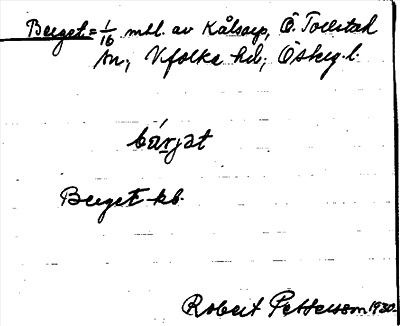 Berget = 1/16 mtl. av Kålsarp, Ö. Tollstad
sn., Vifolka hd., Österg. l.
bárjat
Berget kb.
Robert Pettersson 1930.